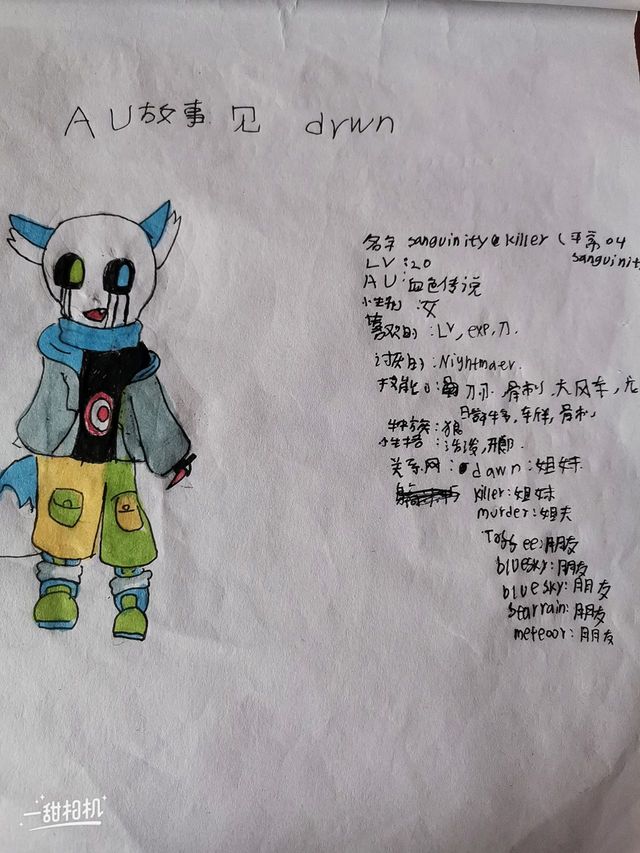 AU故事 见 drwn
名字 sanguinity@killer (平常 04
sanguinit
LV:20
AU:血色传说
小生别:女
喜欢的:LV,exp,刀.
讨厌的:Nightmaer.
技能: 刀刃.骨刺.大风车,
骨刺,
种族:狼
性格:活泼,开郎
关系网: dawn:姐妹
killer:姐妹
murder:姐夫
ee:朋友
bluesky:朋友
bluesky:朋友
starrain:朋友
meteoor:朋友
一甜相机